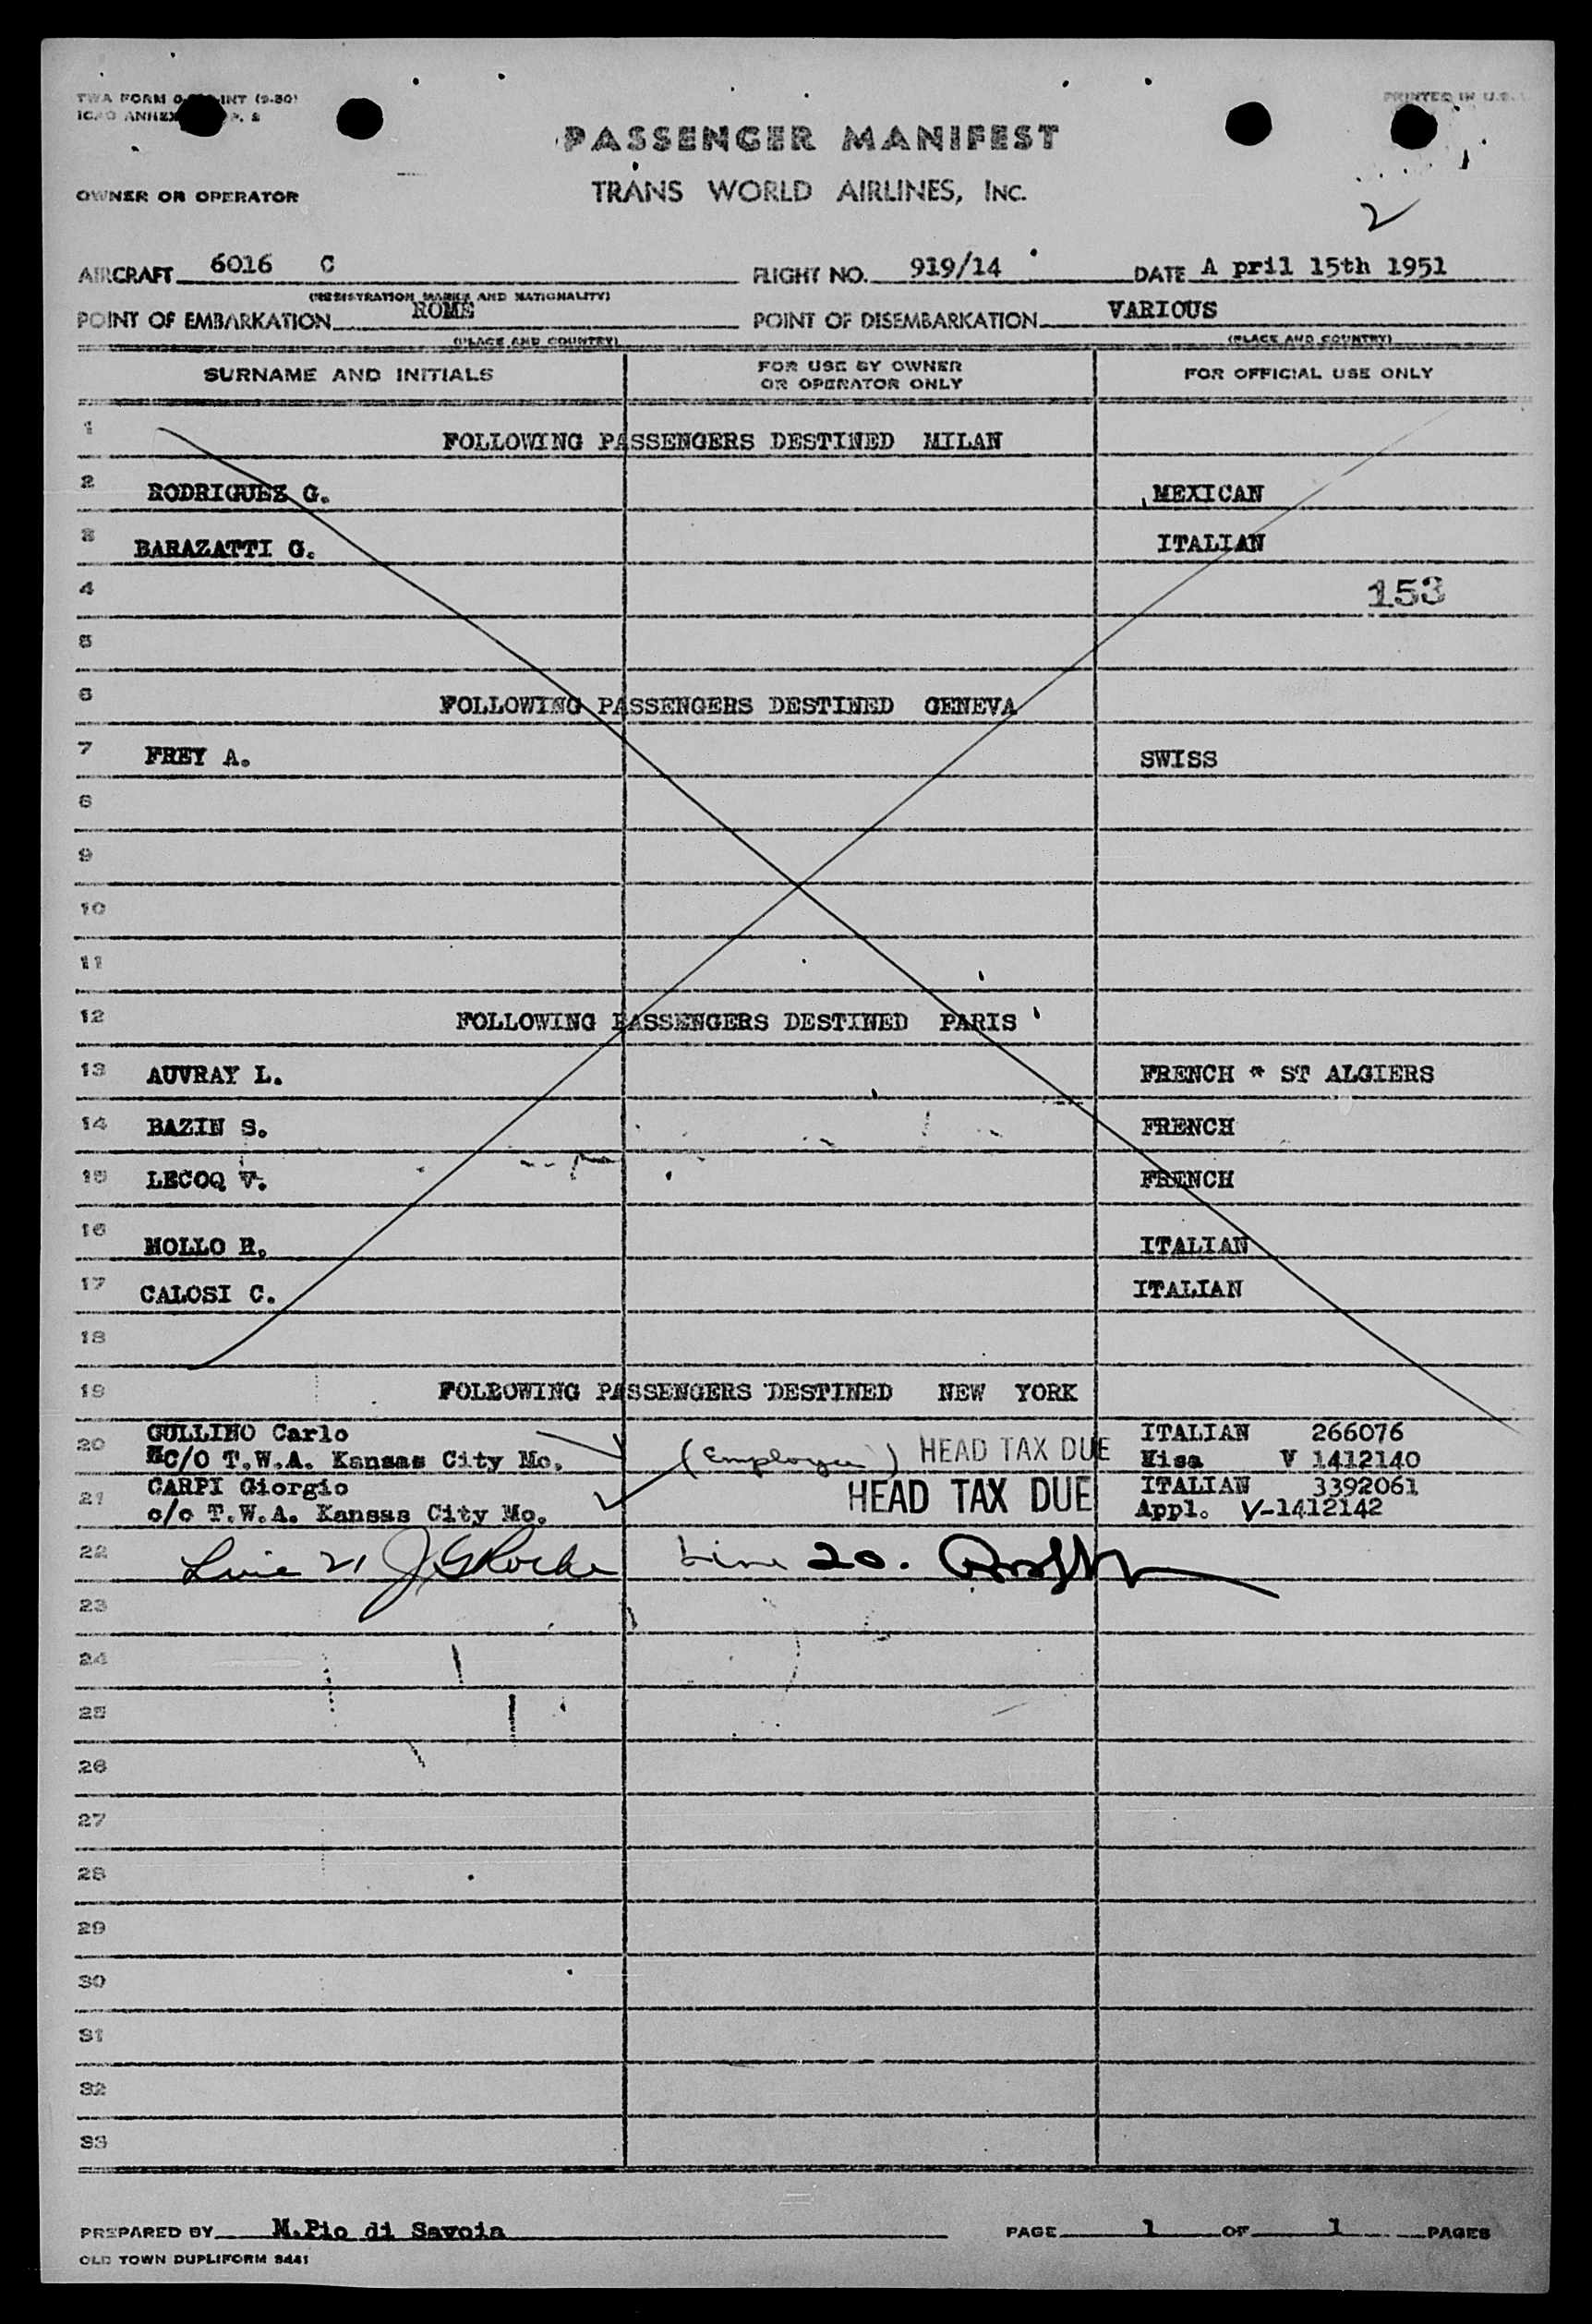 PRINTED IN U.S.
PASSENGER MANIFEST
OWNER OR OPERATOR TRANS WORLD AIRLINES, INC.
2
AIRCRAFT 6016 C FLIGHT NO. 919/14 DATE A pril 15th 1951
(REGISTRATION MARKS AND NATIONALITY)
POINT OF EMBARKATION ROME POINT OF DISEMBARKATION VARIOUS
(PLACE AND COUNTRY) (PLACE AND COUNTRY)
SURNAME AND INITIALS FOR USE BY OWNER OR OPERATOR ONLY FOR OFFICIAL USE ONLY
1 FOLLOWING PASSENGERS DESTINED MILAN
2 RODRIGUEZ G. MEXICAN
3 BARAZATTI G. ITALIAN
4 153
5
6 FOLLOWING PASSENGERS DESTINED GENEVA
7 FREY A. SWISS
8
9
10
11
12 FOLLOWING PASSENGERS DESTINED PARIS
13 AUVRAY L. FRENCH * ST ALGIERS
14 BAZIN S. FRENCH
15 LECOQ V. FRENCH
16 MOLLO R. ITALIAN
17 CALOSI C. ITALIAN
18
19 FOLLOWING PASSENGERS DESTINED NEW YORK
20 GULLINO Carlo ITALIAN 266076
C/O T.W.A. Kansas City Mo. (Employee) HEAD TAX DUE Visa V 1412140
21 CARPI Giorgio ITALIAN 3392061
c/o T.W.A. Kansas City Mo. HEAD TAX DUE Appl. V-1412142
22 Line 21 Line 20.
23
24
25
26
27
28
29
30
31
32
33
PREPARED BY M.Pio di Savoia PAGE 1 OF 1 PAGES
OLD TOWN DUPLIFORM 8441